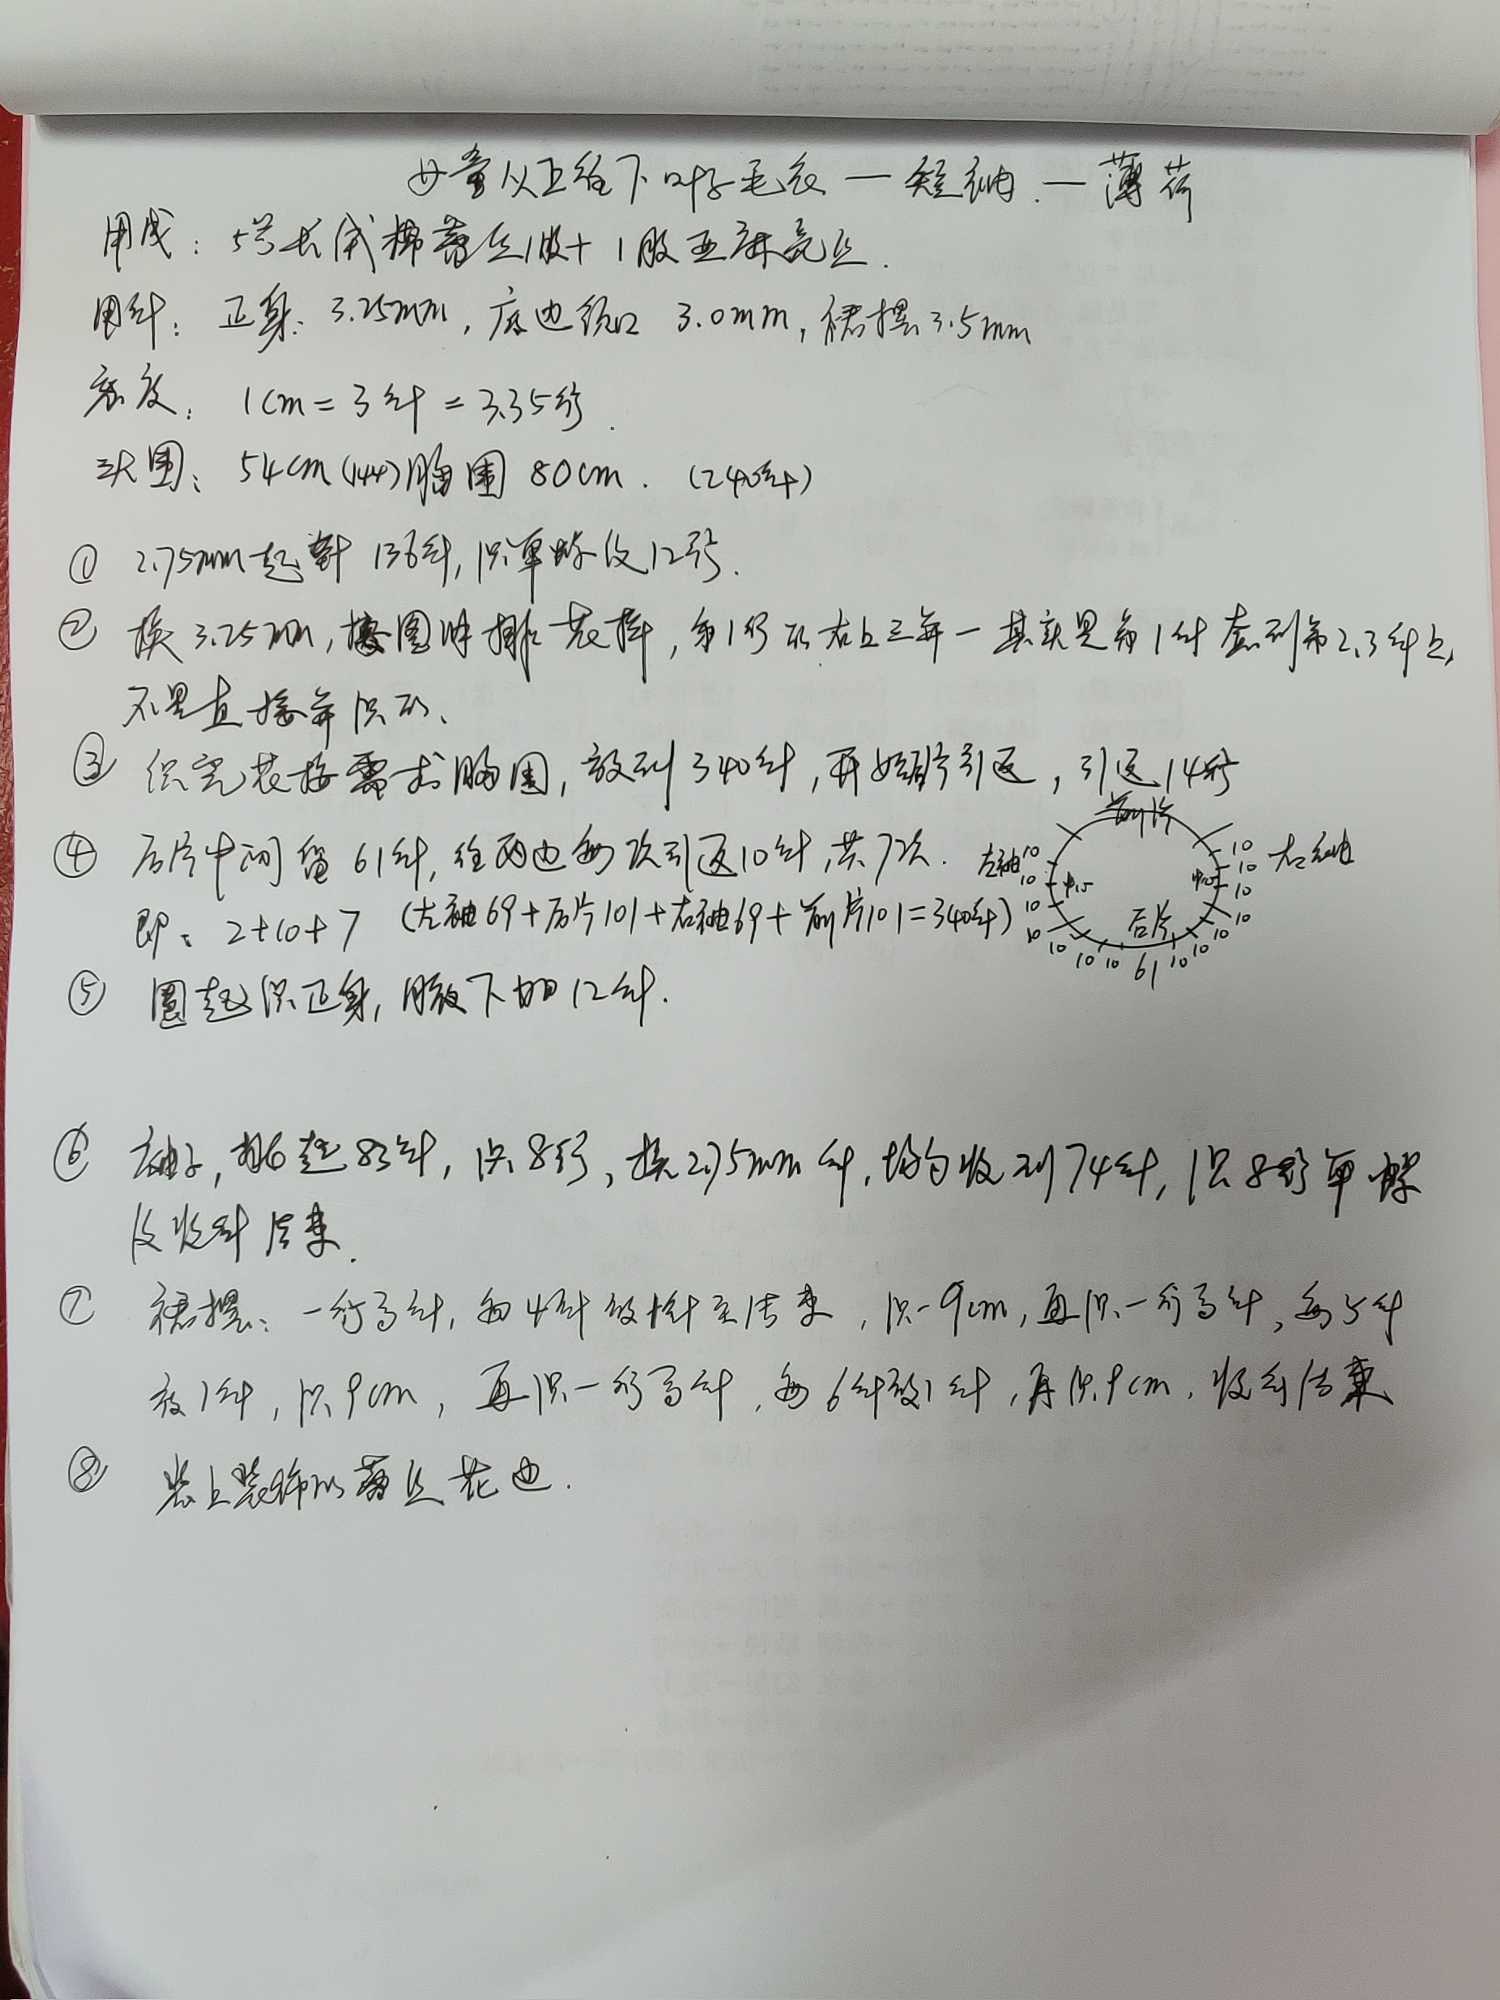 女童从上往下叶子毛衣—短袖.—薄荷
用线：5号长绒棉蕾丝1股+1股亚麻亮丝.
用针：正身：3.25mm，底边领口 3.0mm，裙摆3.5mm
密度：1cm=3针=3.35行.
头围：54cm(144)胸围80cm.(240针)
① 2.75mm起针136针，织单螺纹12行.
② 换3.25mm，按图解排花样，第1行的右上三并一其实是第1针套到第2.3针上，
不是直接并织的、
③ 织完花按需求胸围，放到340针，开始后片引返，引返14行
④ 后片中间留61针，往两边每次引返10针，共7次.
即：2+10+7 (左袖69+后片101+右袖69+前片101=340针)
前片
左袖 10 10
10 10 10 右袖
后片
10 10 10 10 61 10 10 10 10
⑤ 圈起织正身，腋下加12针.
⑥ 袖子，挑起83针，织8行，换2.75mm针，均匀收到74针，织8行单螺
纹收针结束.
⑦ 裙摆：一行上针，每4针放1针至结束，织9cm，再织一行上针，每5针
放1针，织9cm，再织一行上针，每6针放1针，再织9cm，收针结束
⑧ 装上装饰的蕾丝花边.